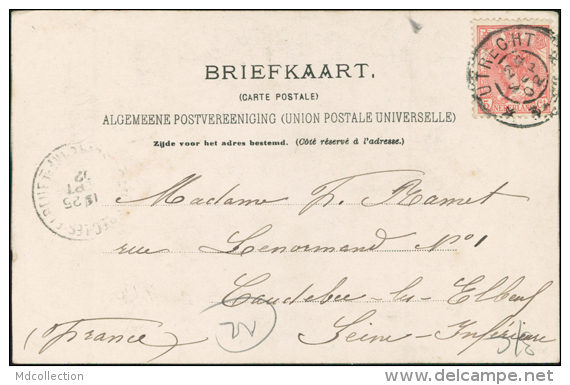 BRIEFKAART.
(CARTE POSTALE)
ALGEMEENE POSTVEREENIGING (UNION POSTALE UNIVERSELLE)
Zijde voor het adres bestemd. (Côté réservé à l'adresse.)
UTRECHT
Madame F. Hamet
rue Lenormand No 1
Caudebec-les-Elbeuf
(France) Seine-Inférieure
Mdcollection
http://www.delcampe.net